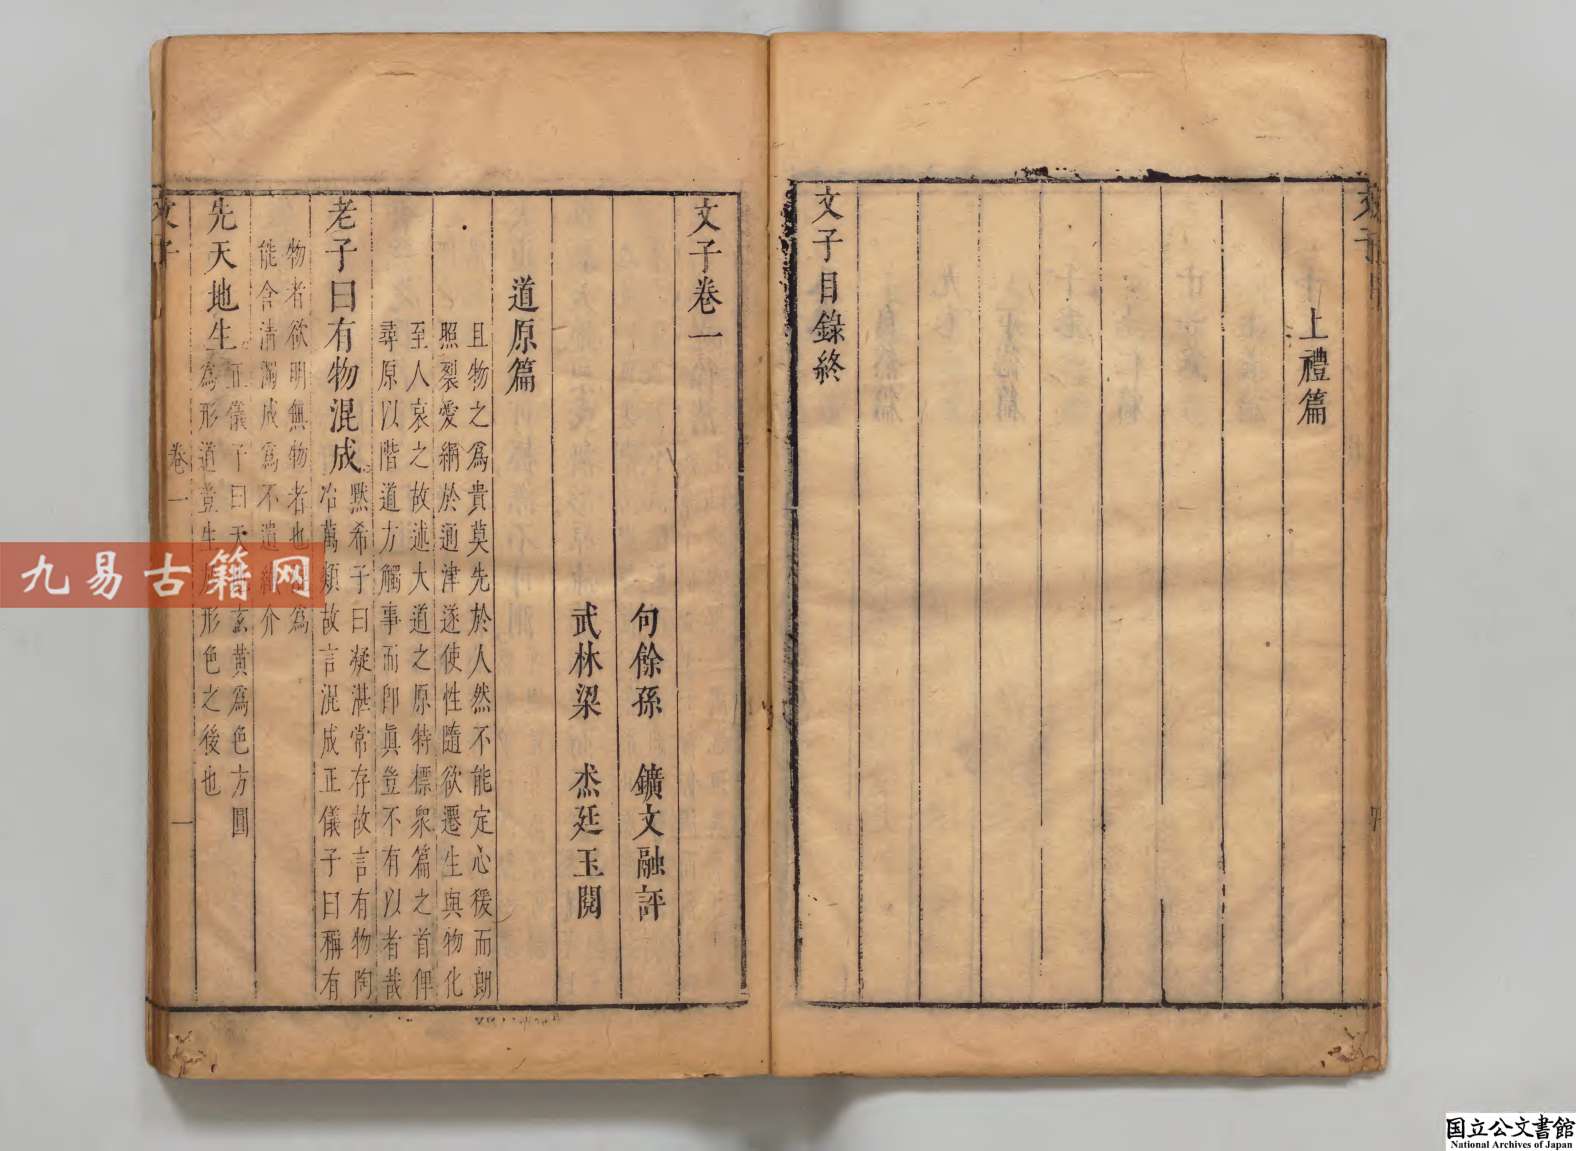 上禮篇
文子目錄終
文子卷一
句餘孫　鑛文融評
武林梁　杰廷玉閱
道原篇
且物之爲貴莫先於人然不能定心猨而朗
照裂愛網於通津遂使性隨欲遷生與物化
至人哀之故述大道之原特標衆篇之首俾
尋原以階道方觸事而卽眞登不有以者哉
老子曰有物混成
黙希子曰凝湛常存故言有物陶
冶萬類故言混成正儀子曰稱有
物者欲明無物者也 爲
能含清濁成爲不遺 介
先天地生
正儀子曰天 玄黃爲色方圓
爲形道豈生 形色之後也
文子
卷一
一
九易古籍网
国立公文書館
National Archives of Japan